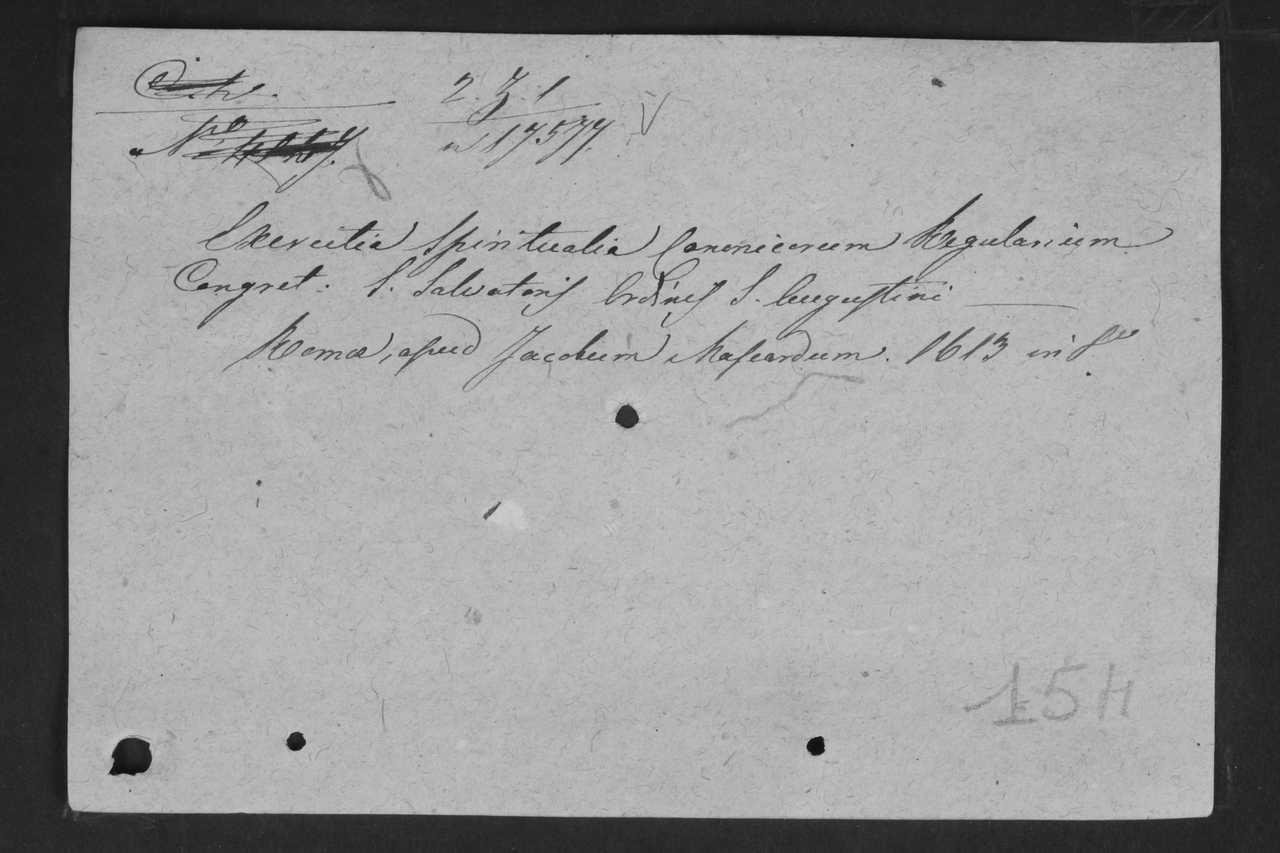 2. Z. 1
n 17577.
Exercitia Spiritualia Canonicorum Regularium
Congret: S. Salvatoris Ordinis S. Augustini
Romæ, apud Jacobum Mascardum. 1613 in 8vo
154